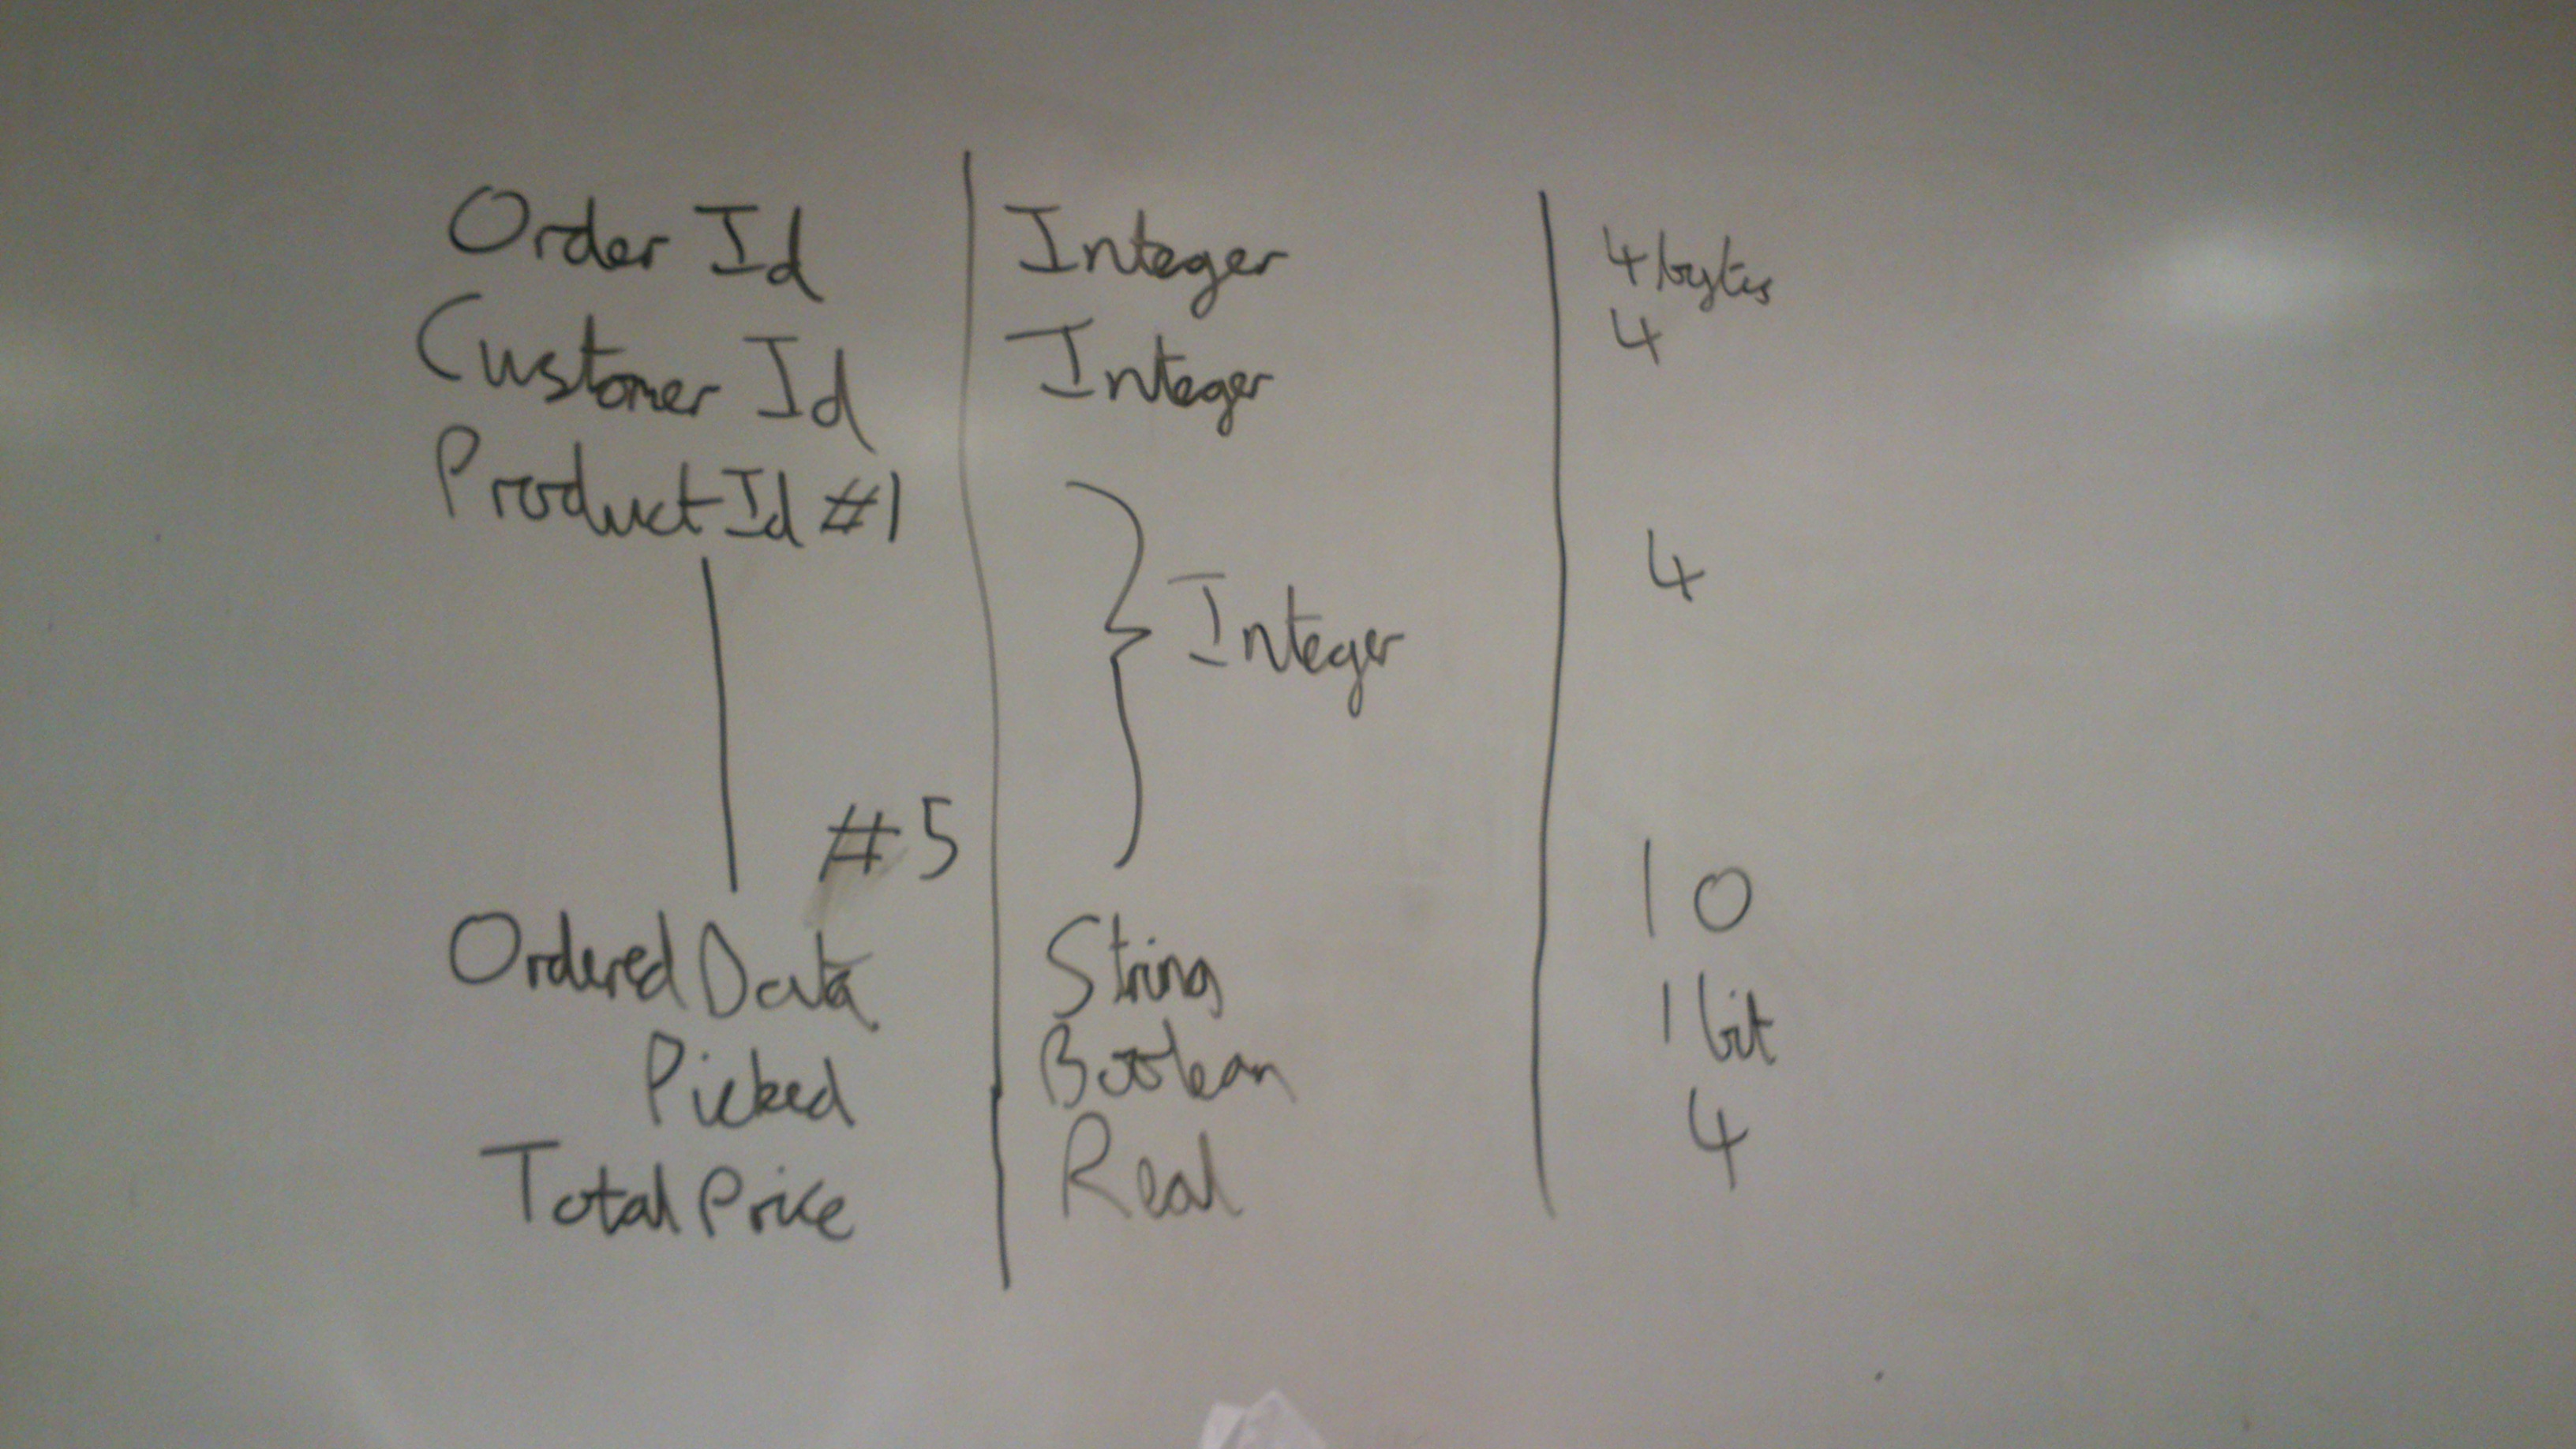 Order Id Integer 4 bytes
Customer Id Integer 4
Product Id #1 4
Integer
#5 10
Ordered Data String
Picked Boolean 1 bit
Total Price Real 4